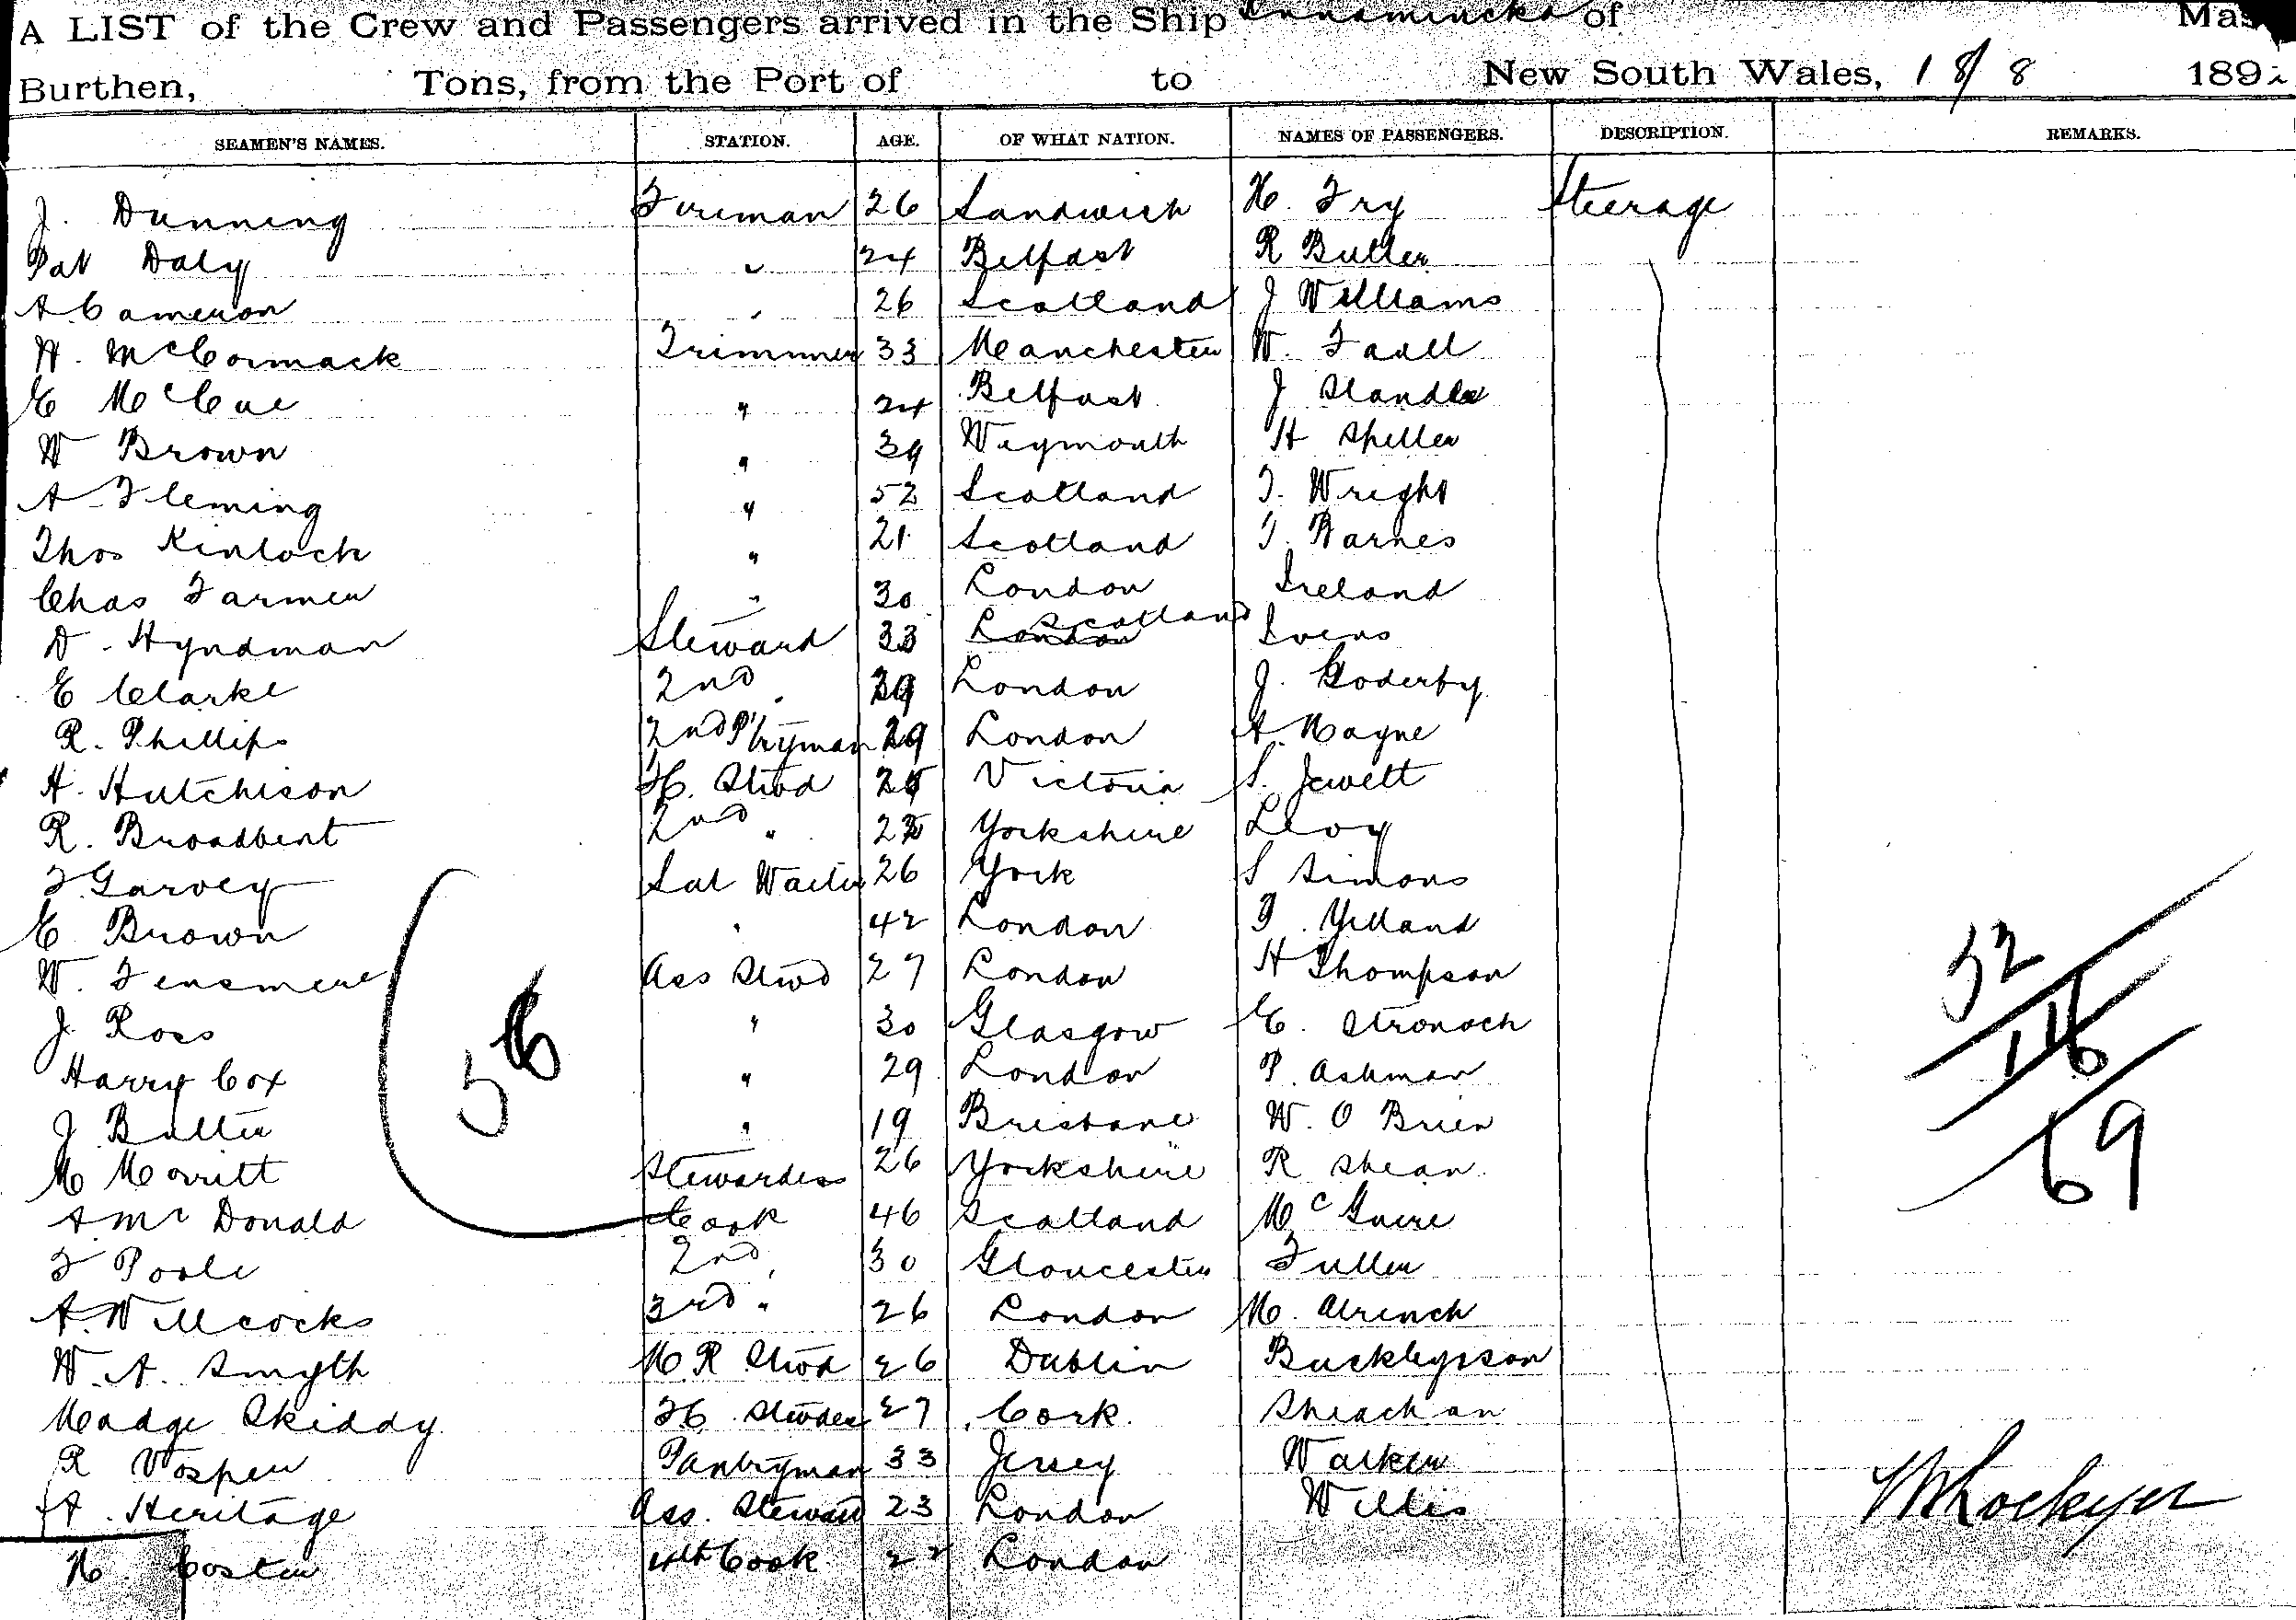 A LIST of the Crew and Passengers arrived in the Ship Innamincka of Mas
Burthen, Tons, from the Port of to New South Wales, 18/8 189
SEAMEN'S NAMES. STATION. AGE. OF WHAT NATION. NAMES OF PASSENGERS. DESCRIPTION. REMARKS.
J. Dunning Fireman 26 Sandwich H. Fry Steerage
Pat Daly " 24 Belfast R Butler
A Cameron " 26 Scotland J Williams
H. McCormack Trimmer 33 Manchester W.
E McCue " 24 Belfast J
W Brown " 39 Weymouth H Spiller
A Fleming " 52 Scotland T. Wright
Thos Kinloch " 21 Scotland T. Barnes
Chas Farmer " 30 London Ireland
D. Hyndman Steward 33 London Scotland Ivens
E Clarke 2nd " London J. Goderby
R. Phillips 2nd P'tryman 29 London A. Mayne
H. Hutchison F.C. Stwd Victoria S. Jewell
R. Broadbent 2nd " Yorkshire Levy
F Garvey Sal Waiter 26 York S Simons
E Brown " 42 London T. Yelland
W. Ass Stwd 27 London H Thompson
J Ross " 30 Glasgow E. Stronach
Harry Cox " 29 London P. Ashman
J Butter " 19 Brisbane W. O Brien
M Merritt Stewardess 26 Yorkshire R Shean
A Mc Donald Cook 46 Scotland McGuire
F Poole 2nd " 30 Gloucester Fuller
A. Willcocks 3rd " 26 London M.
W. A. Smyth M.R Stwd 26 Dublin
Madge Skiddy F.C. Stwdess 27 Cork. Strachan
R Vosper Pantryman 33 Jersey Walker
A. Heritage Ass. Steward 23 London Willis
H. Coster 4th Cook 22 London
56
52
16
69
Lockyer